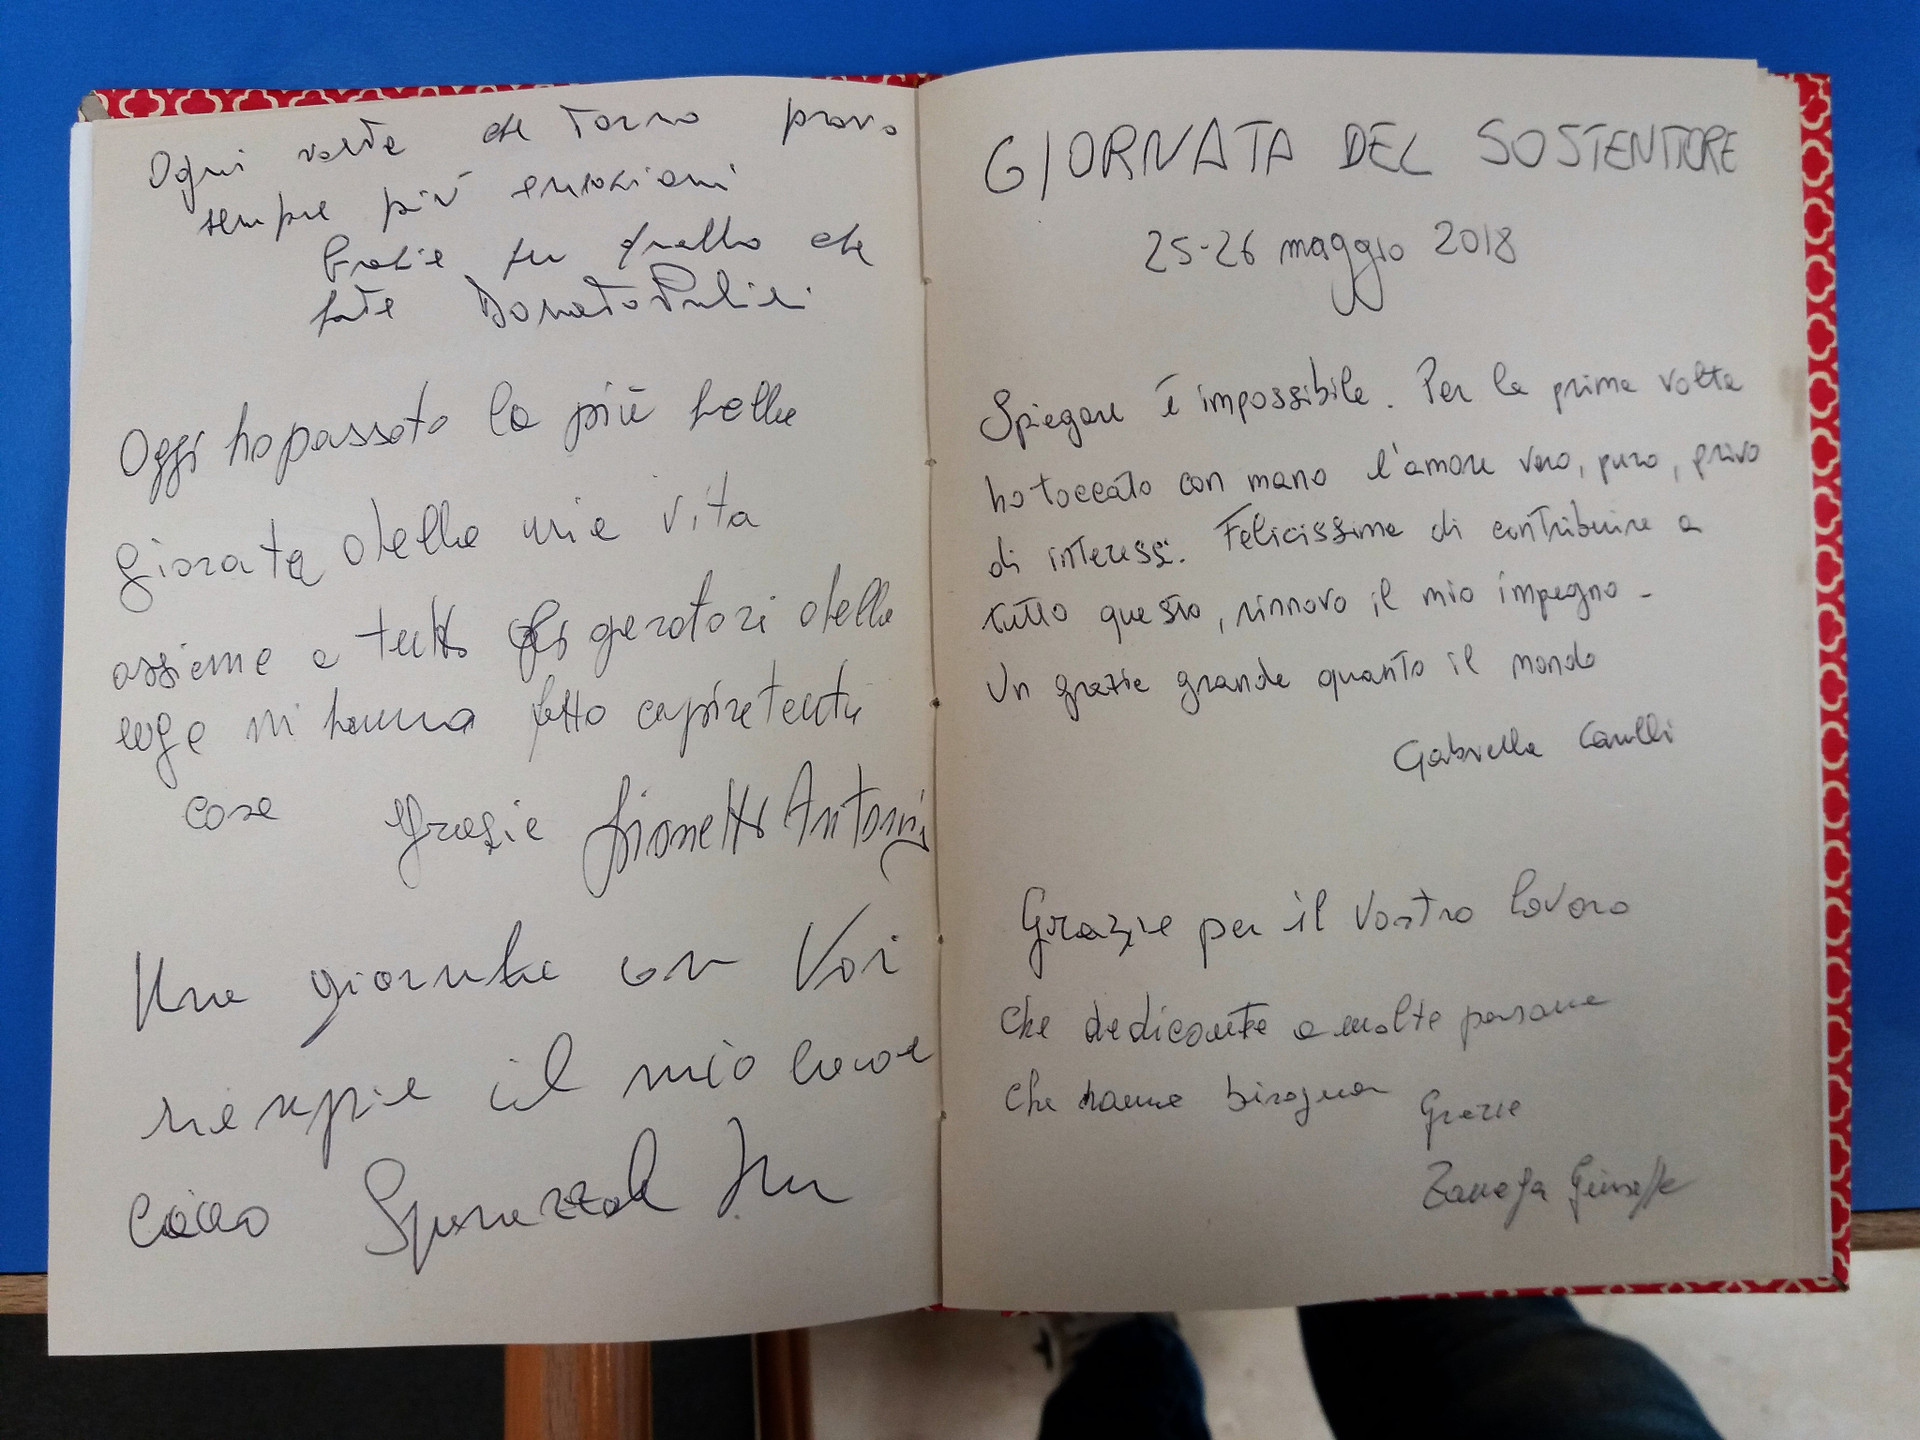 Ogni volta che torno provo
sempre più emozioni
Grazie per quello che
fate Donato
Oggi ho passato la più bella
giorata della mia vita
assieme a tutti gli geratori della
lega mi hanno fatto capire tante
cose Grazie Lionetti Antonio
Una giornata con Voi
riempie il mio cuore
ciao
GIORNATA DEL SOSTENITORE
25-26 maggio 2018
Spiegare è impossibile. Per la prima volta
ho toccato con mano l'amore vero, puro, privo
di interessi. Felicissima di contribuire a
tutto questo, rinnovo il mio impegno -
Un grazie grande quanto il mondo
Gabriella Carulli
Grazie per il Vostro lavoro
che dedicante a molte persone
che hanno bisogno Grazie
Giuseppe